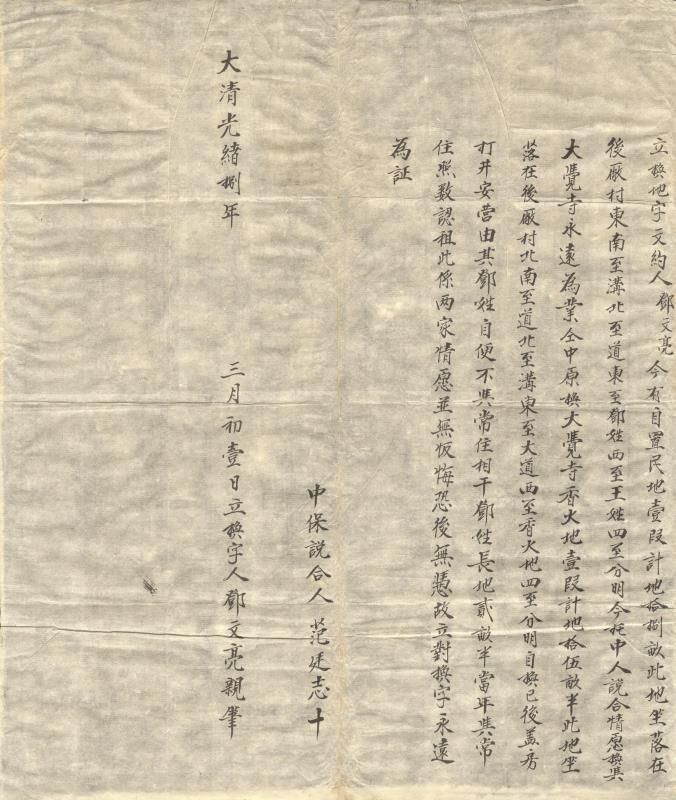 立換地字文約人鄧文亮今有自置民地壹段計地拾捌畝此地坐落在
後厰村東南至溝北至道東至鄧姓西至王姓四至分明今托中人說合情愿換與
大覺寺永遠為業仝中原換大覺寺香火地壹段計地拾伍畝半此地坐
落在後厰村北南至道北至溝東至大道西至香火地四至分明自換已後盖房
打井安营由其鄧姓自便不與常住相干鄧姓長地貳畝半當年與常
住照数認租此係两家情愿並無恢悔恐後無憑故立對換字永遠
為証
中保說合人 范廷志十
大清光緒捌年 三月初壹日立換字人鄧文亮親筆